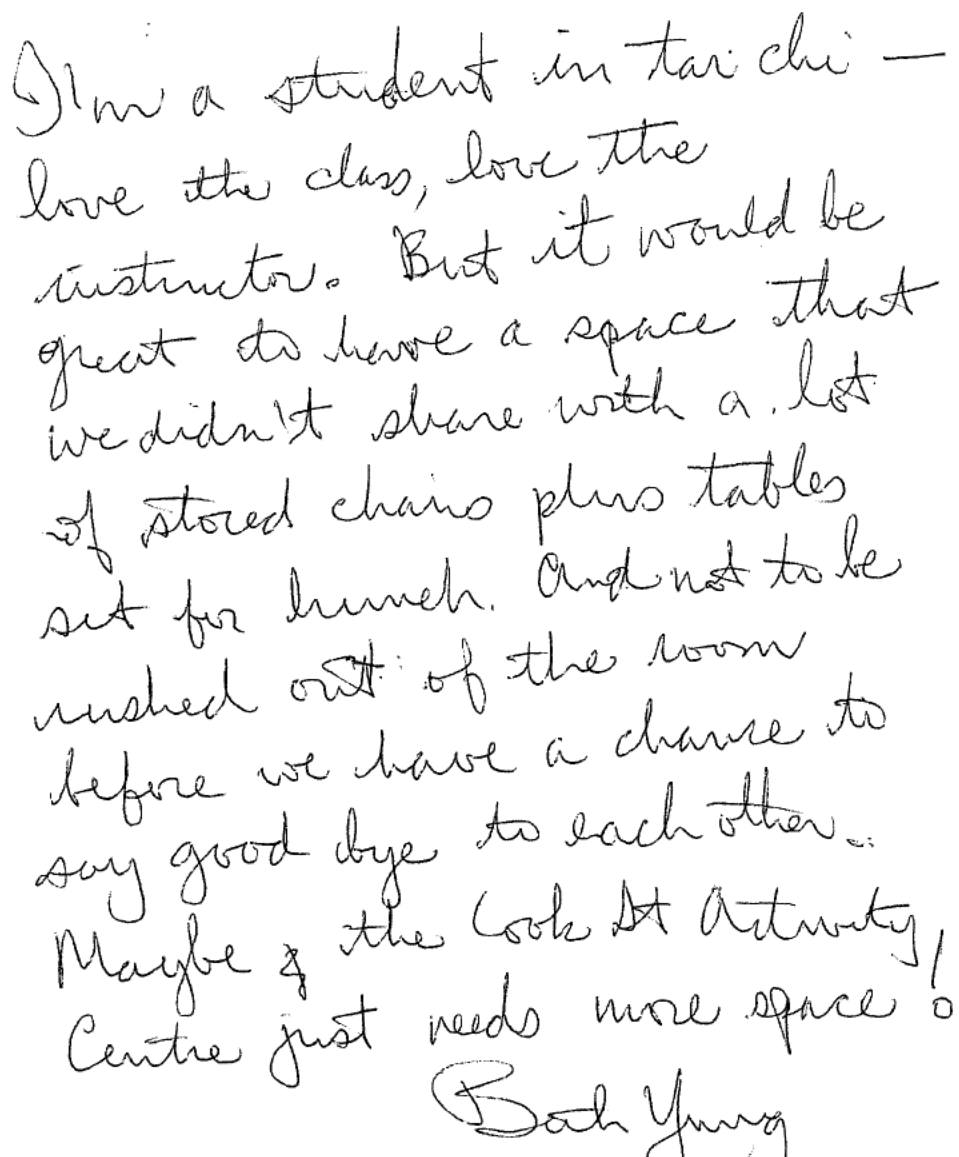 I'm a student in tai chi —
love the class, love the
instructor. But it would be
great to have a space that
we didn't share with a lot
of stored chairs plus tables
set for lunch. And not to be
rushed out of the room
before we have a chance to
say good bye to each other.
Maybe the Cook St Activity
Centre just needs more space!